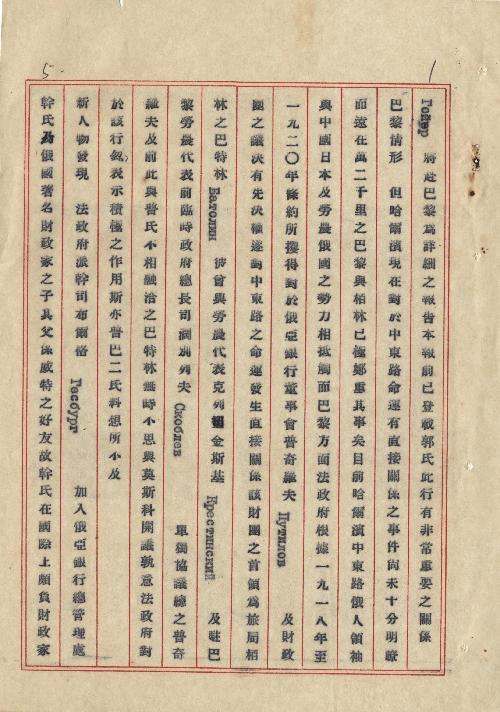 1
5.
Гойер 將赴巴黎爲詳細之報告本報前已登載郭氏此行有非常重要之關係
巴黎情形 但哈爾濱現在對於中東路命運有直接關係之事件尚未十分明瞭
而遠在萬二千里之巴黎與柏林已極鄭重其事矣目前哈爾濱中東路俄人領袖
與中國日本及勞農俄國之勞力相抵觸而巴黎方面法政府根據一九一八年至
一九二〇年條約所攫得對於俄亞銀行董事會普奇羅夫 Путилов 及財政
團之議決有先決權遂對中東路之命運發生直接關係該財團之首領爲旅居柏
林之巴特林 Батолин 彼曾與勞農代表克列斯金斯基 Крестинский 及駐巴
黎勞農代表前臨時政府總長司闊別列夫 Скоблев 單獨協議總之普奇
羅夫及前此與普氏不相融洽之巴特林無時不思與莫斯科開議孰意法政府對
於該行忽表示積極之作用斯亦普巴二氏料想所不及
新人物發現 法政府派幹司布爾格 Гесбург 加入俄亞銀行總管理處
幹氏爲俄國著名財政家之子其父係威特之好友故幹氏在國際上頗負財政家